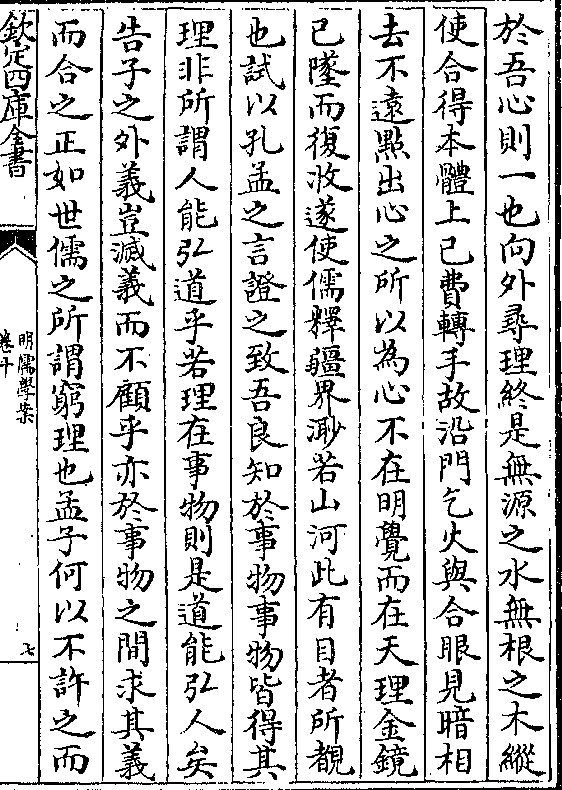 於吾心則一也向外尋理終是無源之水無根之木縱
使合得本體上已費轉手故沿門乞火與合眼見暗相
去不遠點出心之所以為心不在明覺而在天理金鏡
已墜而復收遂使儒釋疆界渺若山河此有目者所覩
也試以孔孟之言證之致吾良知於事物事物皆得其
理非所謂人能弘道乎若理在事物則是道能弘人矣
告子之外義豈滅義而不顧乎亦於事物之間求其義
而合之正如世儒之所謂窮理也孟子何以不許之而
欽定四庫全書
明儒學案
卷十
七